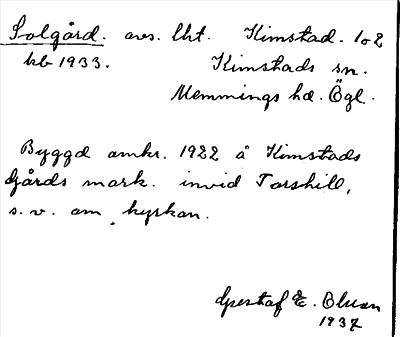 Solgård. avs. lht. Kimstad. 1o2
kb 1933. Kimstads sn.
Memmings hd. Ögl.
Byggd omkr. 1922 å Kimstads
Gårds mark. invid Torshill,
s. v. om kyrkan.
Gustaf E. Olsson
1937